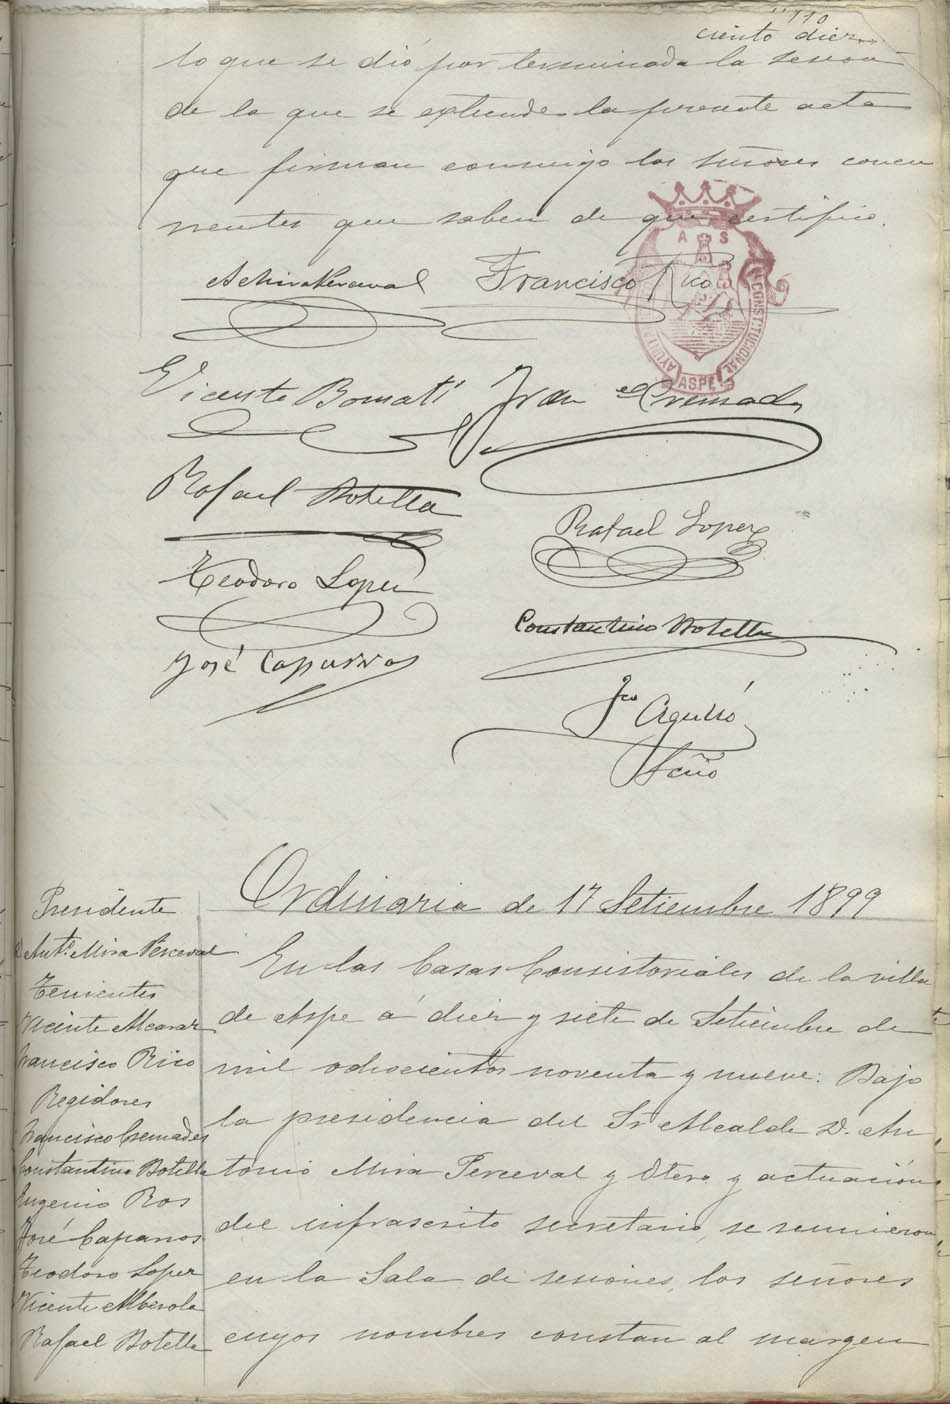 110
ciento diez
lo que se dió por terminada la sesion
de la que se extiende la presente acta
que firman conmigo los señores concu
rrentes que saben de que certifico.
A. Mira Perceval
Francisco Rico
AYUNT CONSTITUCIONAL
ASPE
Vicente Bomatí
Fran co Cremades
Rafael Botella
Rafael Lopez
Teodoro Lopez
Constantino Botella
José Caparros
Fco Agulló
Srio
Ordinaria de 17 Setiembre 1899
Presidente
D. Antº Mira Perceval
Tenientes
Vicente Alcaraz
Francisco Rico
Regidores
Francisco Cremades
Constantino Botella
Eugenio Ros
José Caparros
Teodoro Lopez
Vicente Alberola
Rafael Botella
En las Casas Consistoriales de la villa
de Aspe á diez y siete de Setiembre de
mil ochocientos noventa y nueve: Bajo
la presidencia del Sr Alcalde D. An
tonio Mira Perceval y Otero y actuación
del infrascrito secretario, se reunieron
en la Sala de sesiones, los señores
cuyos nombres constan al margen